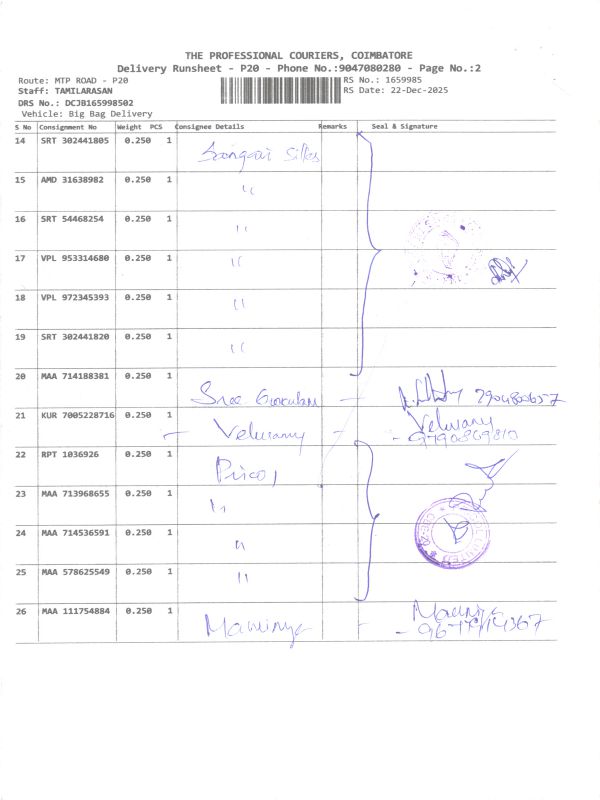 THE PROFESSIONAL COURIERS, COIMBATORE
Delivery Runsheet - P20 - Phone No.:9047080280 - Page No.:2
Route: MTP ROAD - P20 RS No.: 1659985
Staff: TAMILARASAN RS Date: 22-Dec-2025
DRS No.: DCJB165998502
Vehicle: Big Bag Delivery
S No Consignment No Weight PCS Consignee Details Remarks Seal & Signature
14 SRT 302441805 0.250 1 Silks
15 AMD 31638982 0.250 1 "
16 SRT 54468254 0.250 1 "
17 VPL 953314680 0.250 1 "
18 VPL 972345393 0.250 1 "
19 SRT 302441820 0.250 1 "
20 MAA 714188381 0.250 1 Sree -
21 KUR 7005228716 0.250 1 - Velusamy - Velusamy
- 9790869810
22 RPT 1036926 0.250 1
23 MAA 713968655 0.250 1 "
24 MAA 714536591 0.250 1 "
25 MAA 578625549 0.250 1 "
26 MAA 111754884 0.250 1 -